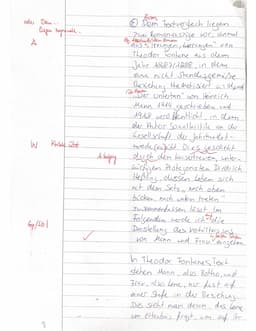 ② Dem Textvergleich liegen
zwei Romanauszüge vor, einmal
aus „Irrungen, Wirrungen" von
Theodor Fontane aus dem
Jahr 1887/1888, in dem
eine nicht standesgemäße
Beziehung thematisiert wird und
„Der Untertan" von Heinrich
Mann 1914 geschrieben und
1918 veröffentlicht, in dem
der Autor Sozialkritik an der
Gesellschaft der Jahrhundert-
wende übt. Dies geschieht
durch den
würfigen Protagonisten Diederich
Heßling, dessen Leben sich
mit dem Satz „nach oben
bücken, nach unten treten"
zusammenfassen lässt. Im
Folgenden werde ich die
Darstellung des Verhältnisses
von Mann und Frau eingehen
In Theodor Fontanes Text
stehen Mann, also Botho, und
Frau, also Lene, nur fast auf
einer Stufe in der Beziehung.
Das sieht man daran, dass Lene
um Erlaubnis fragt, um auf ihr
A
W